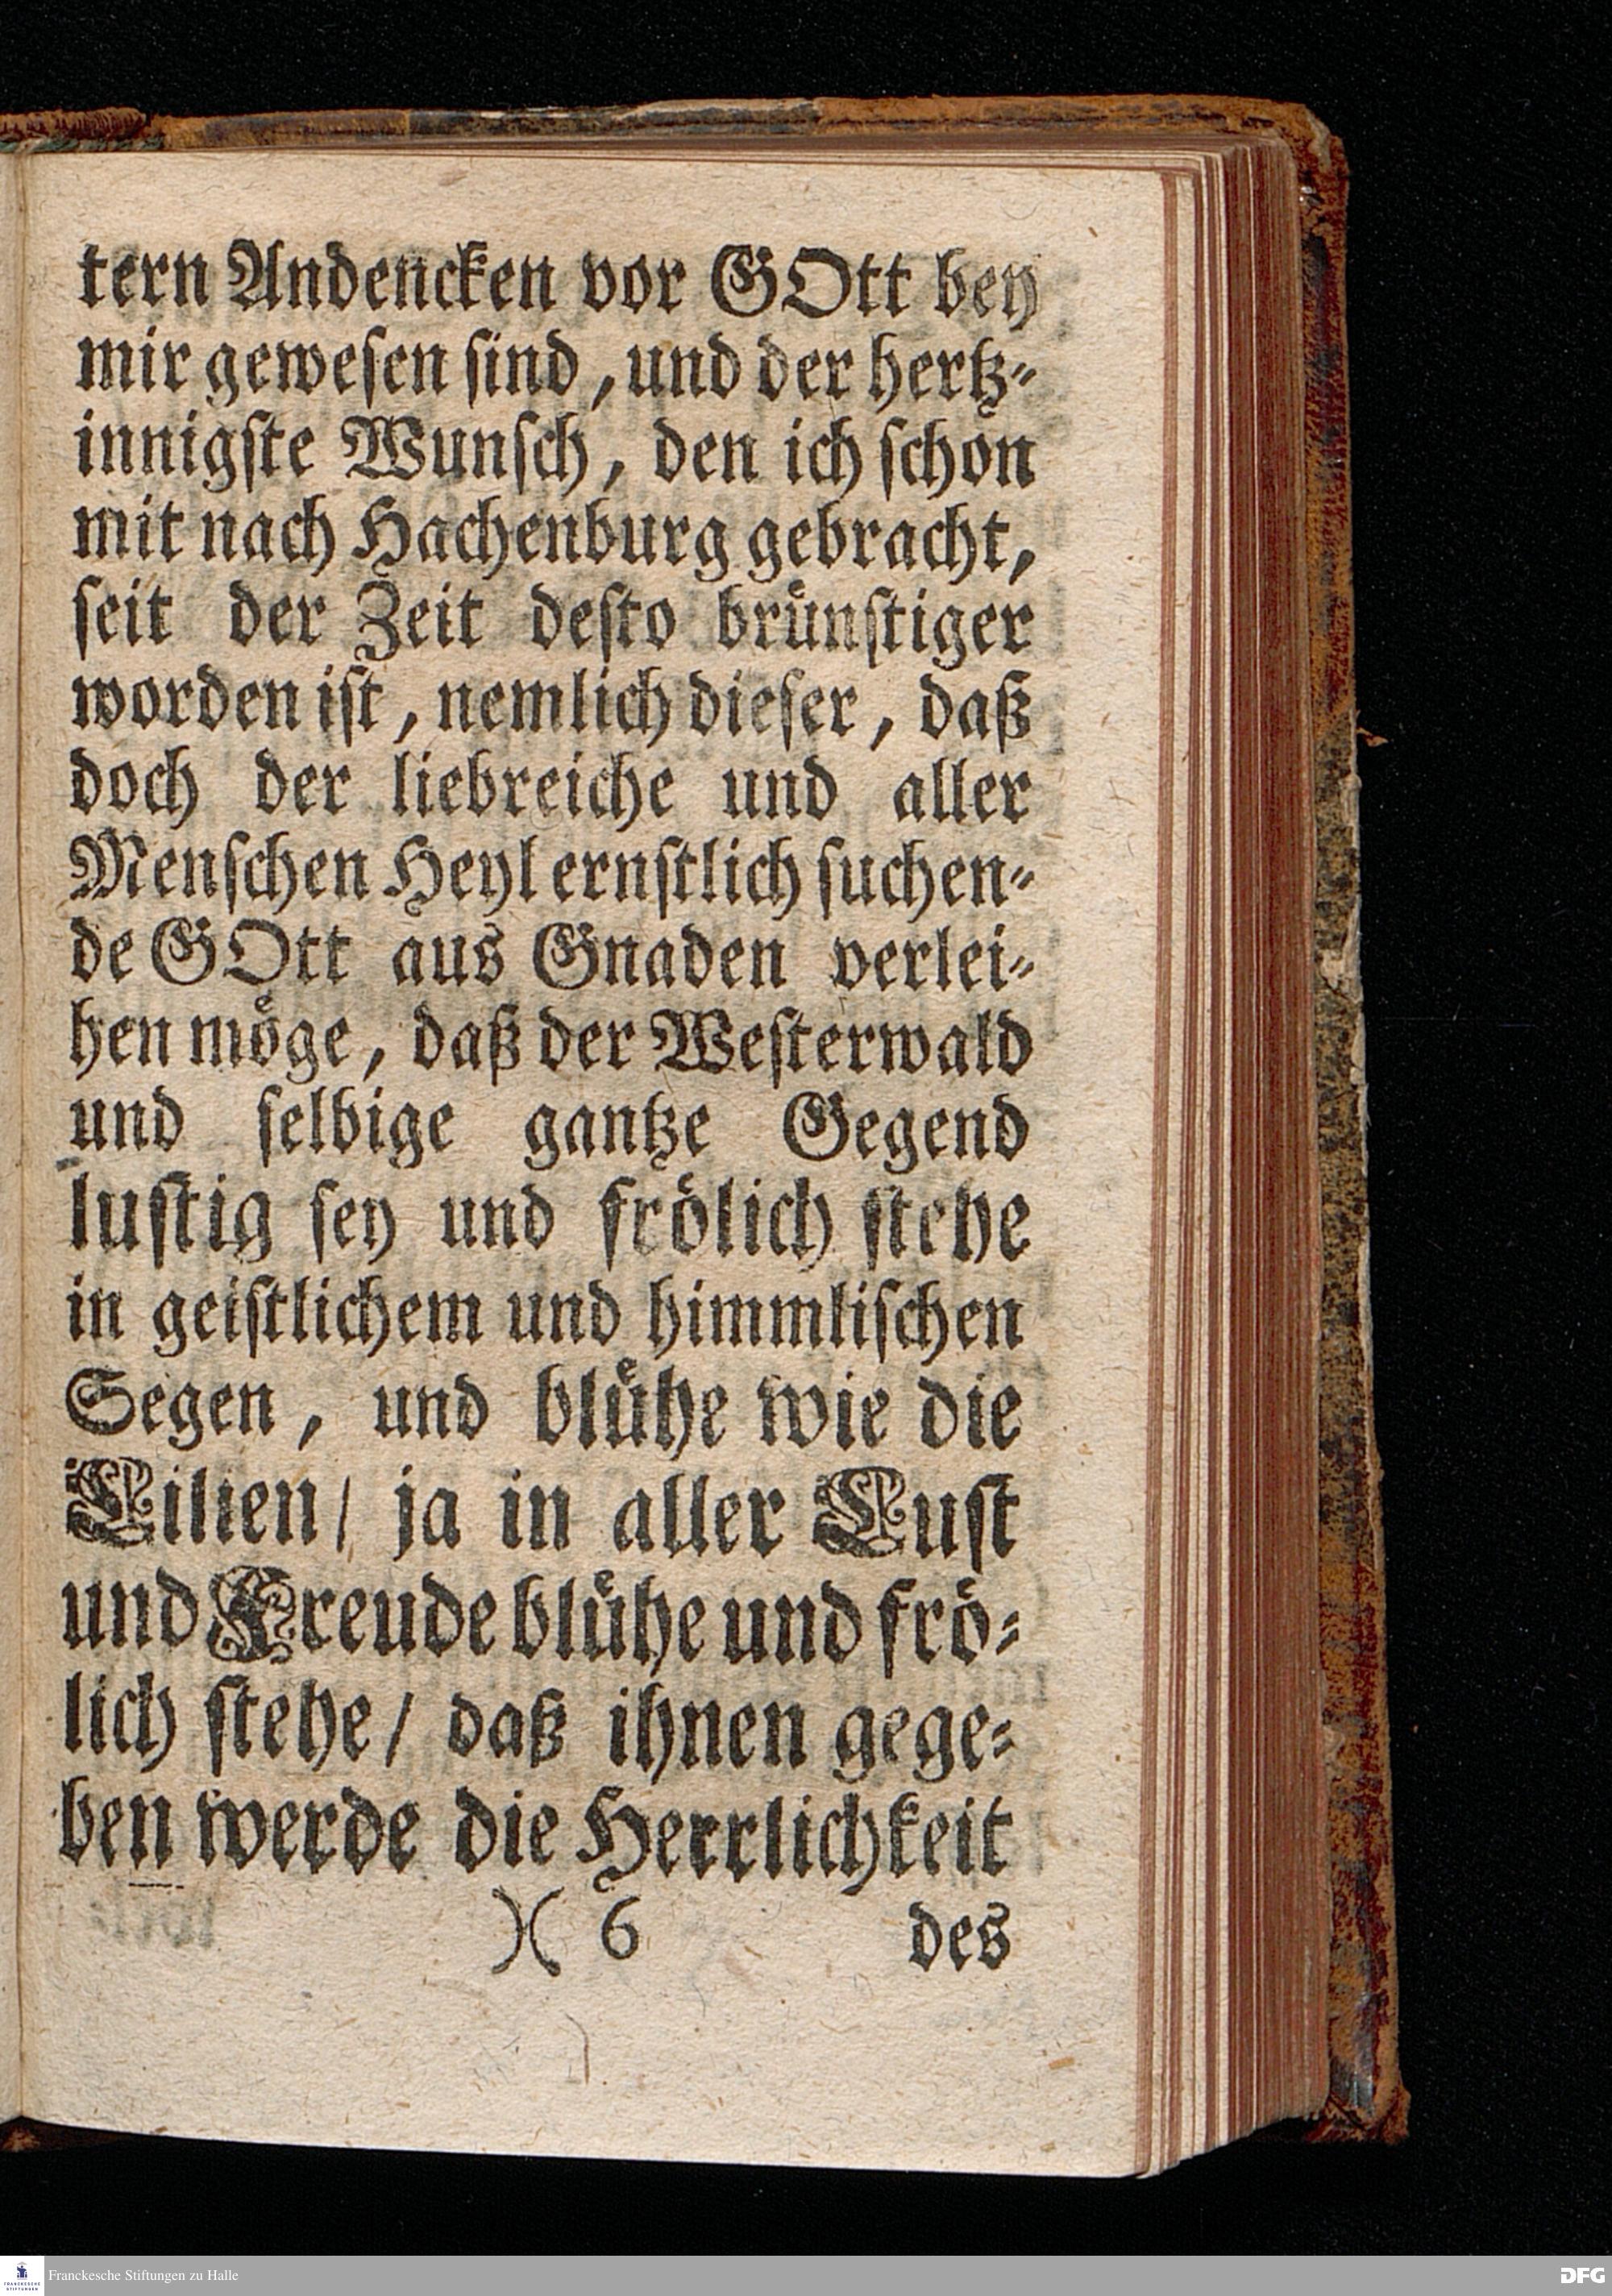 tern Andencken vor GOtt bey
mir gewesen sind, und der hertz-
innigste Wunsch, den ich schon
mit nach Hachenburg gebracht,
seit der Zeit desto brünstiger
worden ist, nemlich dieser, daß
doch der liebreiche und aller
Menschen Heyl ernstlich suchen-
de GOtt aus Gnaden verlei-
hen möge, daß der Westerwald
und selbige gantze Gegend
lustig sey und frölich stehe
in geistlichem und himmlischen
Segen, und blühe wie die
Lilien/ ja in aller Lust
und Freude blühe und frö-
lich stehe/ daß ihnen gege-
ben werde die Herrlichkeit
)( 6 des
FRANCKESCHE STIFTUNGEN
Franckesche Stiftungen zu Halle
DFG